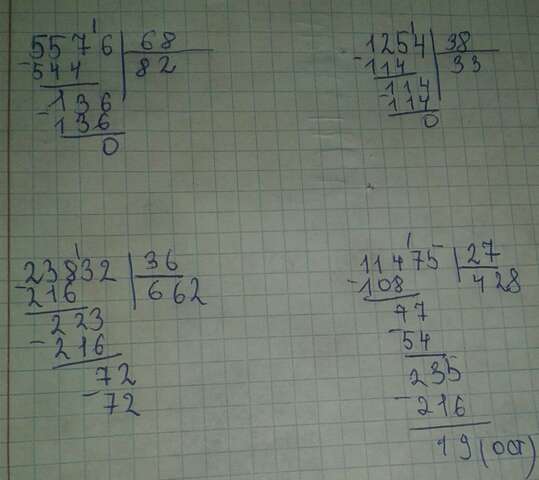 5576 68
-544 82
136
-136
0
1254 38
-114 33
114
-114
0
23832 36
-216 662
223
-216
72
-72
11475 27
-108 428
77
-54
235
-216
19 (ост)